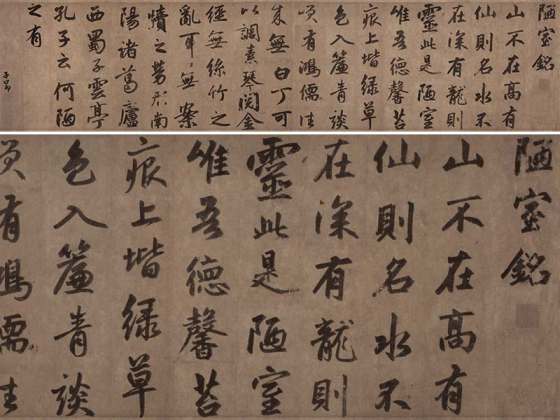 陋室銘
山不在高有
仙則名水不
在深有龍則
靈此是陋室
唯吾德馨苔
痕上堦綠草
色入簾青談
咲有鴻儒往
来無白丁可
以調素琴閱金
經無絲竹之
亂耳無案
牘之勞形南
陽諸葛廬
西蜀子雲亭
孔子云何陋
之有
子昂
陋室銘
山不在高有
仙則名水不
在深有龍則
靈此是陋室
唯吾德馨苔
痕上堦綠草
色入簾青談
咲有鴻儒往